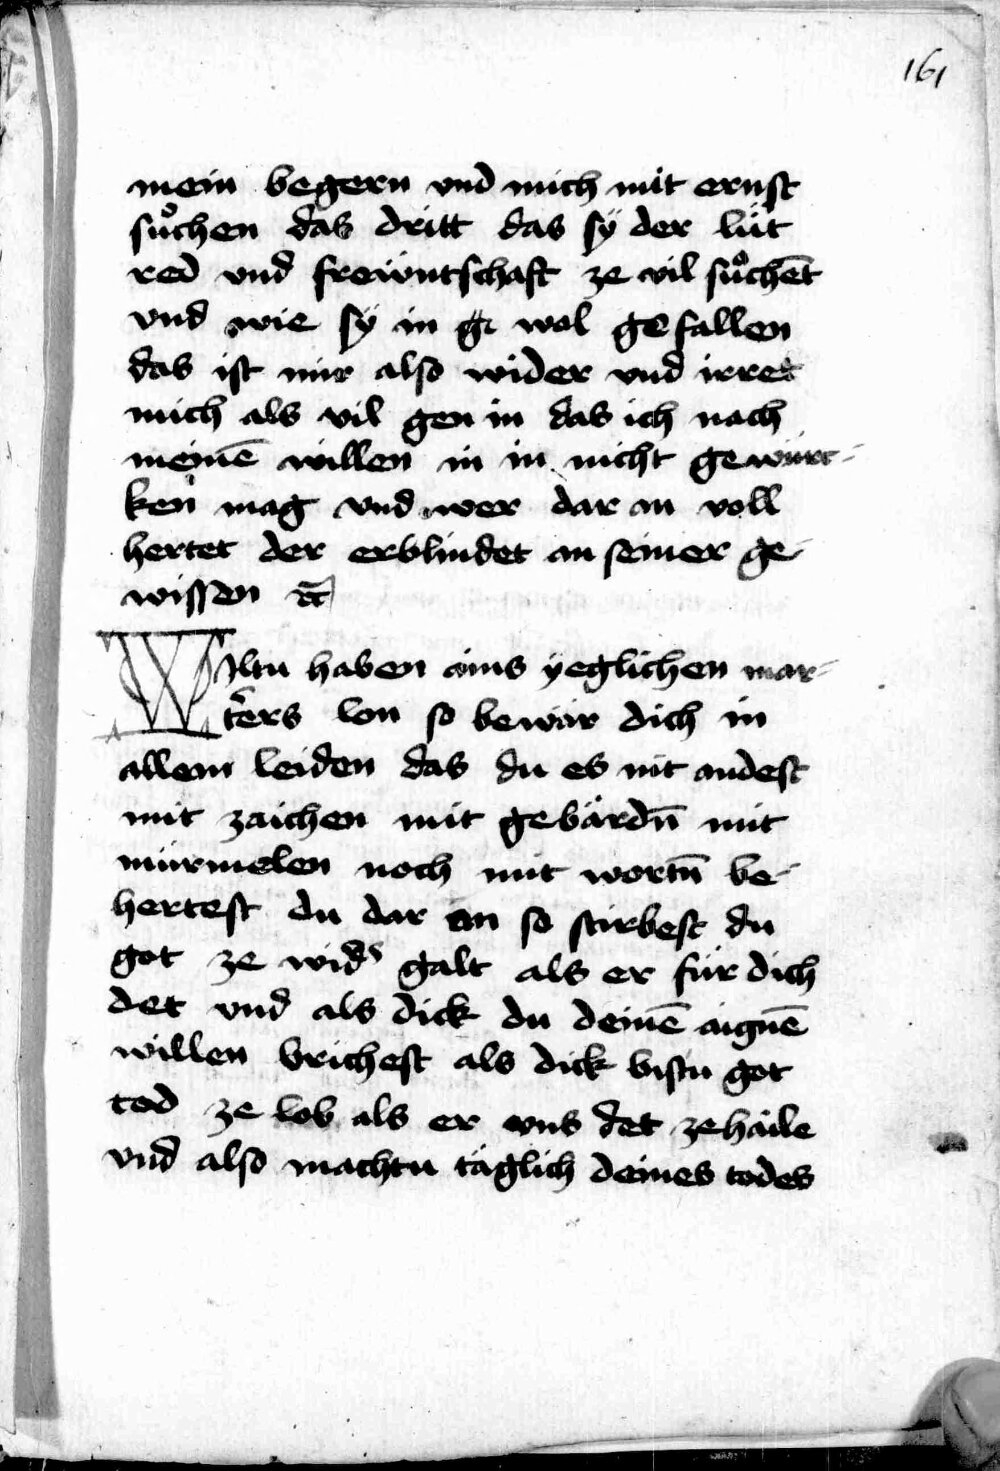 161
mein begern vnd mich mit ernst
suͦchen das dritt das sÿ der lüt
red vnd frewntschaft ze vil suͦchēt
vnd wie sÿ in wol gefallen
das ist mir also wider vnd irret
mich als vil gen in das ich nach
meinē willen in in nicht gewürc-
ken mag vnd wer dar an voll
hertet der erblindet an seiner ge-
wissen
WIltu haben ains yeglichen mar-
ters lon so bewar dich in
allem leiden das du es nit andest
mit zaichen mit gebärdn̄ mit
mürmelen noch mit wortn̄ be-
hertest du dar an so stirbest du
got ze wid' galt als er für dich
det vnd als dick du deinē aignē
willen brichest als dick bistu got
tod ze lob als er vns det ze haile
vnd also machtu täglich deines todes